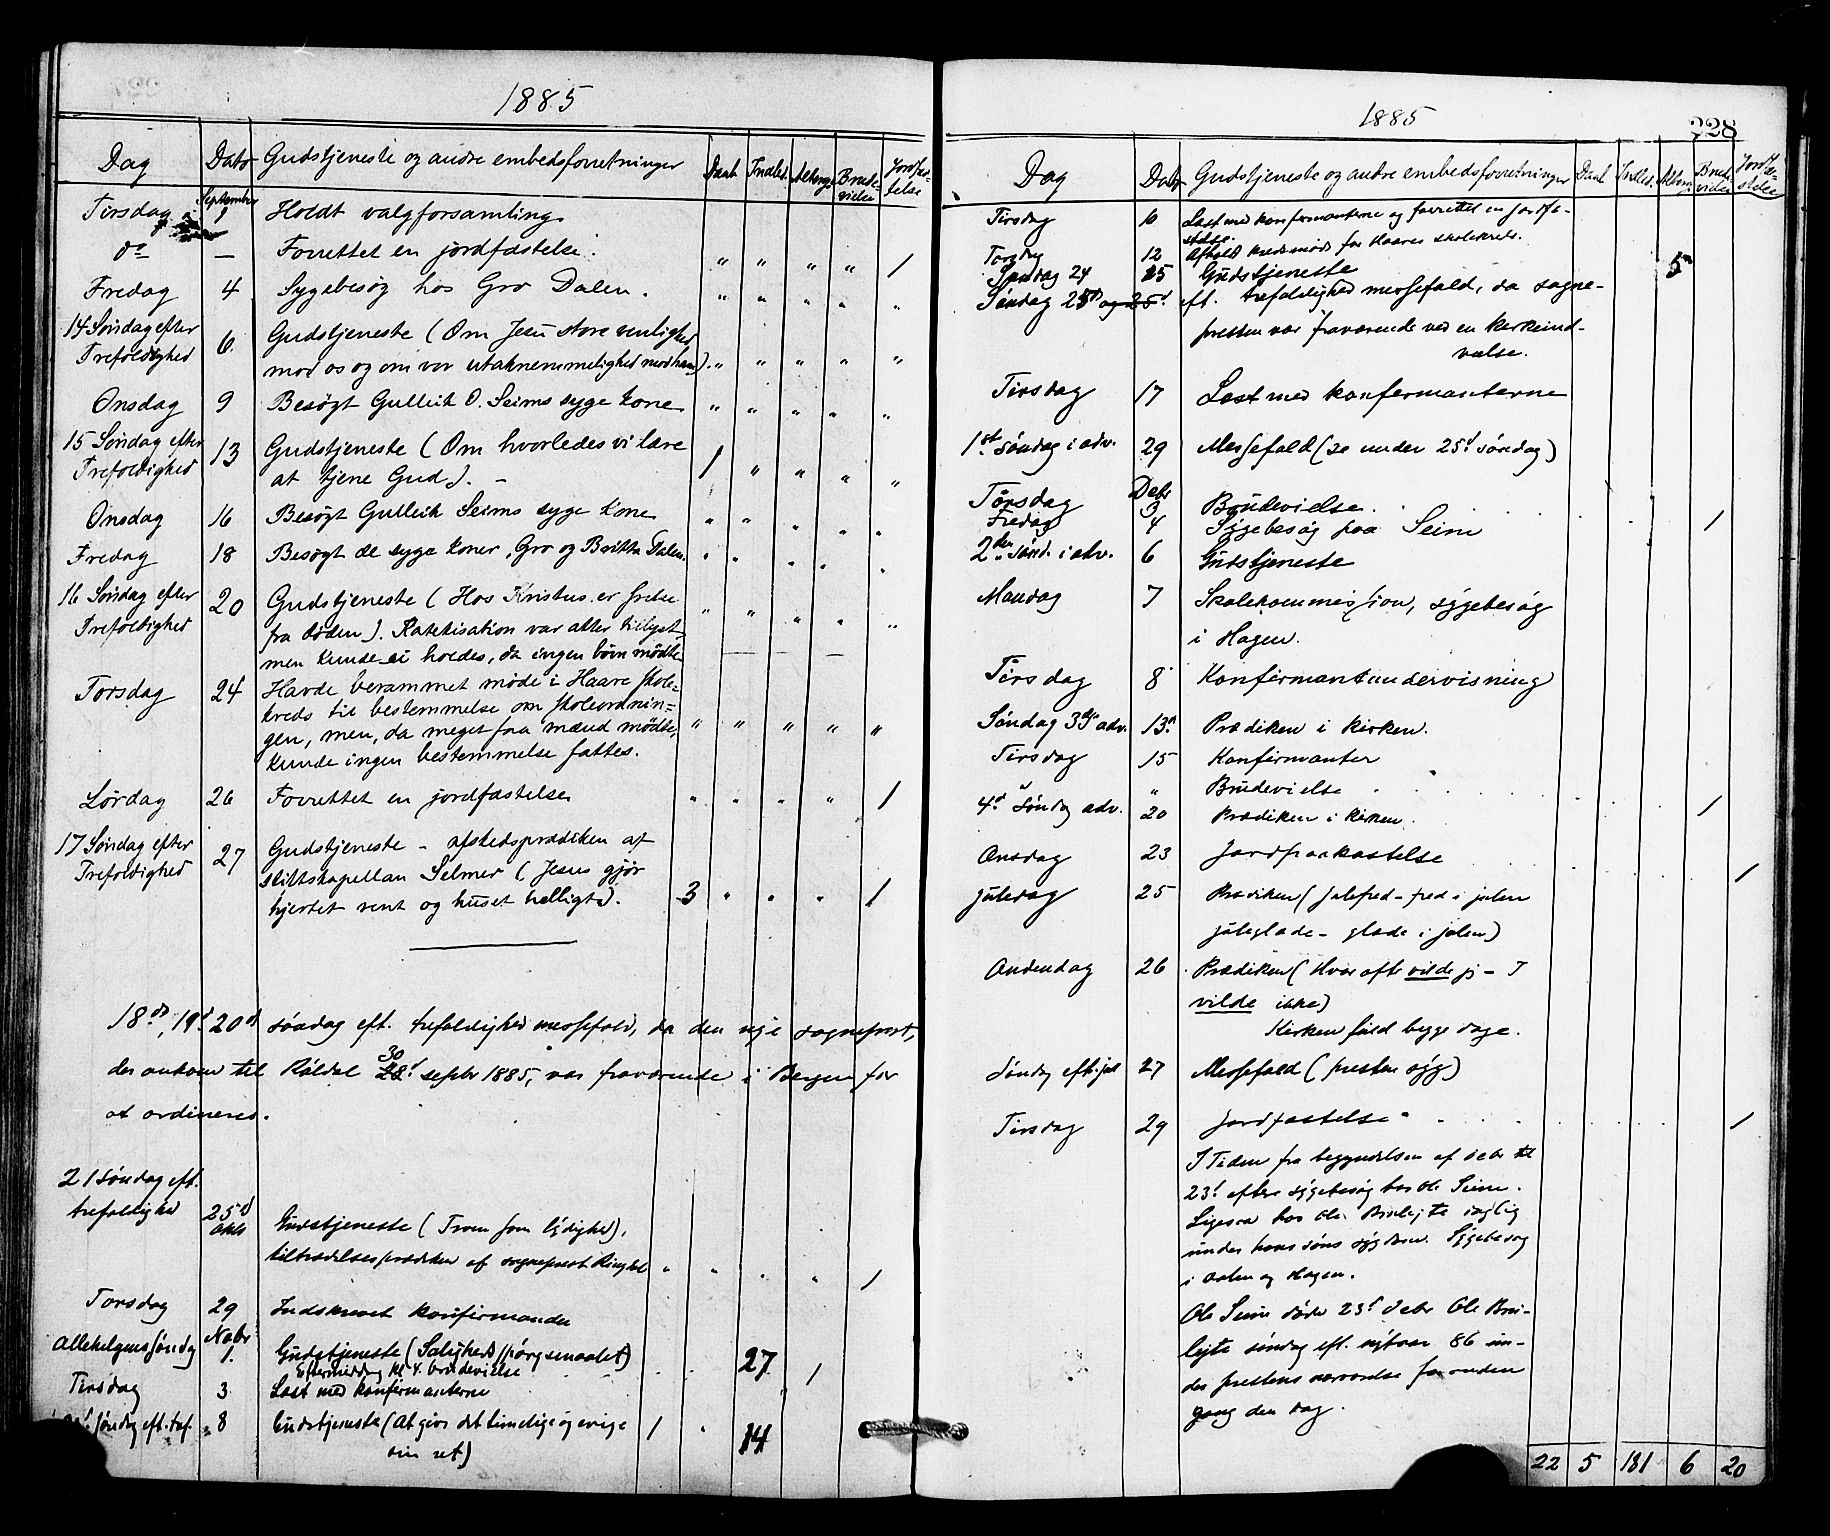 1885
Dag Dato Gudstjeneste og andre embedsforretninger Daab Indled. Alterg. Brude-vielse Jordfæs-telse
Tirsdag September 1 Holdt valgforsamling
do — Forrettet en jordfæstelse. " " " " 1
Fredag 4 Sygebesøg hos Gro Dalen. " " " " "
14 Søndag efter Gudstjeneste (Om Jesu store venlighed
Trefoldighed 6. mod os og om vor utaknemmelighed mod ham). " " " " "
Onsdag 9 Besøgt Gulleik O. Seims syge kone " " " " "
15 Søndag efter Gudstjeneste (Om hvorledes vi lære
Trefoldighed 13 at tjene Gud). – 1 " " " "
Onsdag 16 Besøgt Gulleik Seims syge kone " " " " "
Fredag 18 Besøgt de syge koner, Gro og Britha Dalen. " " " " "
16 Søndag efter 20 Gudstjeneste (Hos Kristus er frelse
Trefoldighed fra døden). Katekisation var atter tillyst
men kunde ei holdes, da ingen børn mødte
Torsdag 24 Havde berammet møde i Haare skole-
kreds til bestemmelse om skoleordnin-
gen, men, da meget faa mænd mødte, " " " " "
kunde ingen bestemmelse fattes.
Lørdag 26 Forrettet en jordfæstelse " " " " 1
17 Søndag efter 27 Gudstjeneste – afskedsprædiken af
Trefoldighed stiftskapellan Selmer (Jesus gjør
hjertet rent og huset helligt). 3 " " " 1
18de, 19d 20de søndag eft. trefoldighed messefald, da den nye sogneprest,
der ankom til Røldal 30 28d septbr 1885, var fraværende i Bergen for
at ordineres.
21 søndag eft.
trefoldighed 25d Oktb Gudstjeneste (Troen som lydighed),
tiltrædelsesprædiken af sogneprest " " " " 1
Torsdag 29 Indskrevet konfirmander
Allehelgenssøndag Novbr 1. Gudstjeneste (Saligheds spørgsmaalet)
Eftermiddag kl 4. brudevielse 27 1
Tirsdag 3 Læst med konfirmanterne
søndag eft. tref. 8 Gudstjeneste (At give det timelige og evige 1 " 14
sin ret)
1885 228
Dag Dato Gudstjeneste og andre embedsforretninger Daab Indled. Alterg. Brude-vielse Jordfæ-stelse
Tirsdag 10 Læst med konfirmanterne og forrettet en jordfæ-
stelse.
Torsdag 12 Afholdt kredsmøde for Haares skolekreds.
Søndag 24 15 Gudstjeneste 5
Søndag 25d og 25d eft. trefoldighed messefald, da sogne-
presten var fraværende ved en kirkeind-
vielse.
Tirsdag 17 Læst med konfirmanterne
1st søndag i adv. 29 Messefald (se under 25d søndag)
Torsdag Debr 3 Brudevielse . . . . 1
Fredag 4 Sygebesøg paa Seim
2den Sønd. i adv. 6 Gudstjeneste
Mandag 7 Skolekommission, sygebesøg
i Hagen.
Tirsdag 8 Konfirmantundervisning
Søndag 3die adv. 13. Prædiken i kirken.
Tirsdag 15 Konfirmanter
" Brudevielse . . . . 1
4d Søndag adv. 20 Prædiken i kirken.
Onsdag 23 Jordpaakastelse . . . . 1
juledag 25 Prædiken (julefred – fred i julen
juleglæde – glæde i julen)
Andendag 26 Prædiken (Hvor ofte vilde jeg – I
vilde ikke)
Kirken fuld begge dage.
Søndag eft. jul 27 Messefald (presten syg)
Tirsdag 29 Jordfæstelse . . . . 1
I Tiden fra begyndelsen af debr til
23d oftere sygebesøg hos Ole Seim.
Ligesaa hos Ole daglig
under hans søns sygdom. Sygebesøg
i Dalen og Hagen.
Ole Seim døde 23d debr Ole
søndag eft. nytaar 86 un-
der prestens nærværelse for anden
gang den dag.
22 5 181 6 20